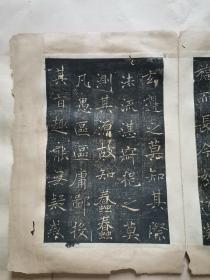 玄遵之莫知其際
法流湛寂挹之莫
測其源故知蠢蠢
凡愚區區庸鄙投
其旨趣能無疑惑